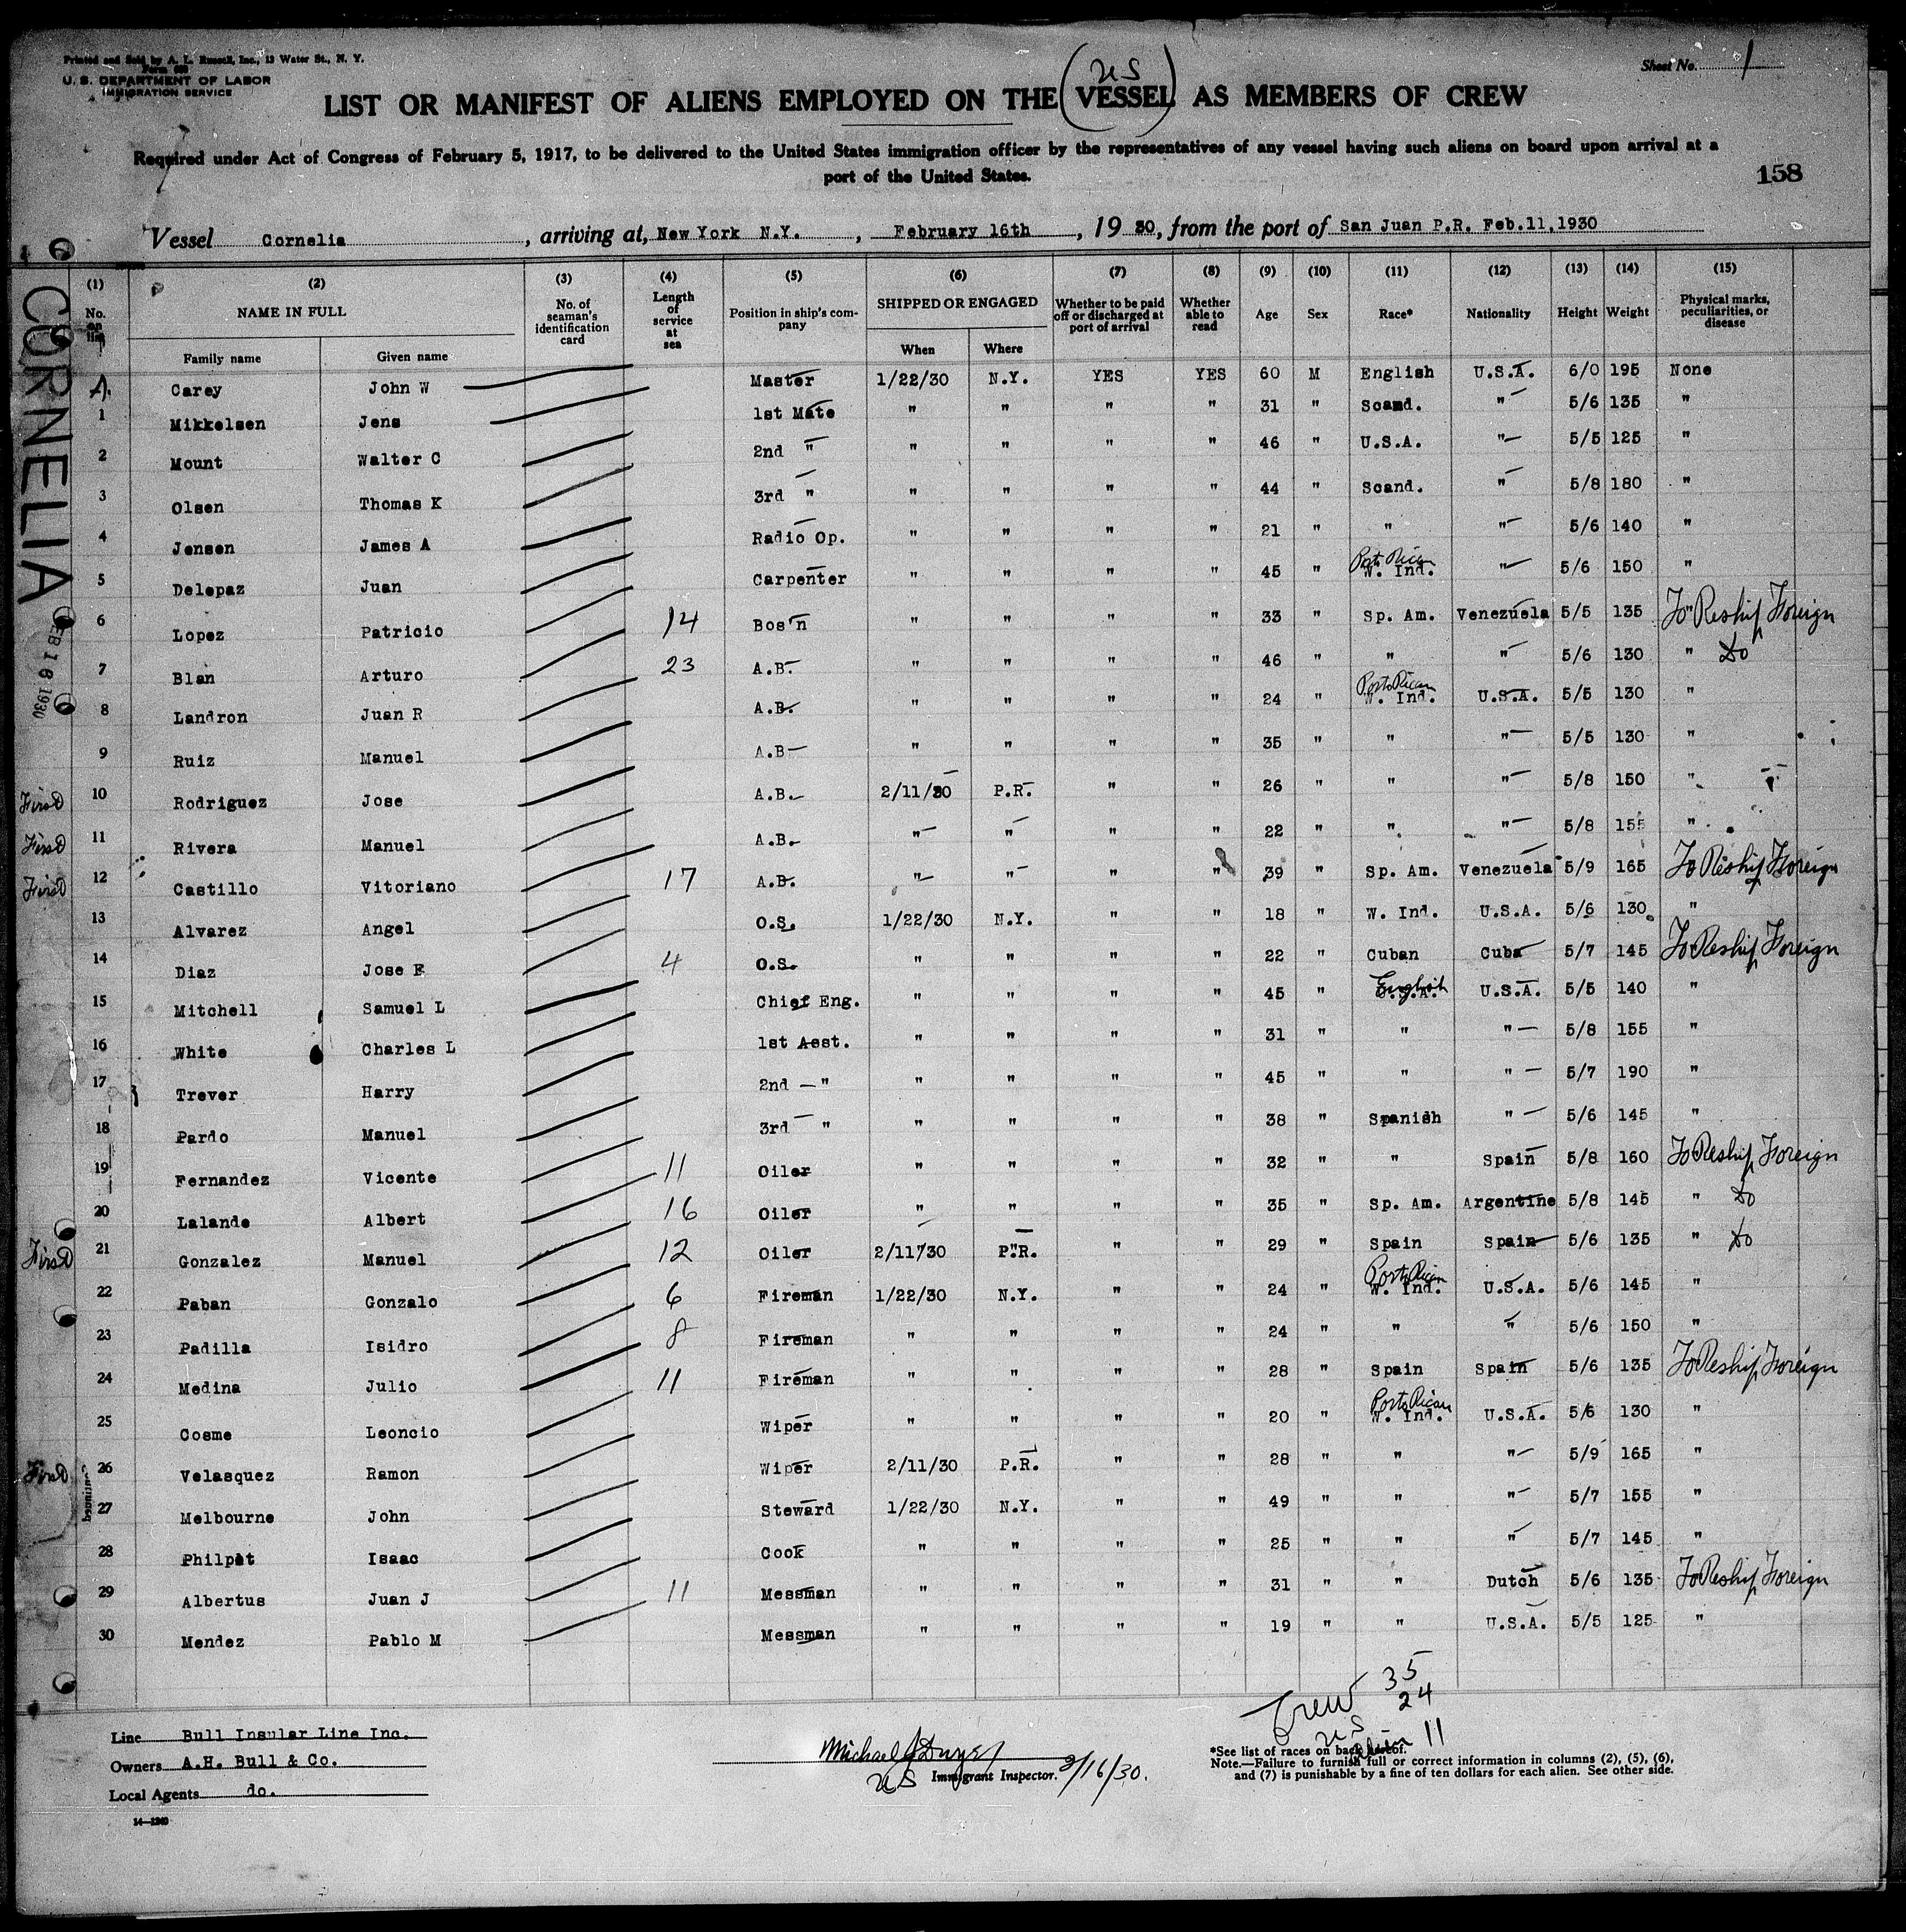 Printed and Sold by A. L. Russell, Inc., 13 Water St., N. Y.
U. S. DEPARTMENT OF LABOR
IMMIGRATION SERVICE
Sheet No. 1
US
LIST OR MANIFEST OF ALIENS EMPLOYED ON THE (VESSEL) AS MEMBERS OF CREW
Required under Act of Congress of February 5, 1917, to be delivered to the United States immigration officer by the representatives of any vessel having such aliens on board upon arrival at a
port of the United States.
158
Vessel Cornelia, arriving at, New York N.Y., February 16th, 1930, from the port of San Juan P.R. Feb.11,1930
CORNELIA
FEB 16 1930
(1) (2) (3) (4) (5) (6) (7) (8) (9) (10) (11) (12) (13) (14) (15)
No. on list NAME IN FULL Family name Given name No. of seaman's identification card Length of service at sea Position in ship's company SHIPPED OR ENGAGED When Where Whether to be paid off or discharged at port of arrival Whether able to read Age Sex Race* Nationality Height Weight Physical marks, peculiarities, or disease
A. Carey John W Master 1/22/30 N.Y. YES YES 60 M English U.S.A. 6/0 195 None
1 Mikkelsen Jens 1st Mate " " " " 31 " Scand. " 5/6 135 "
2 Mount Walter C 2nd " " " " " 46 " U.S.A. " 5/5 125 "
3 Olsen Thomas K 3rd " " " " " 44 " Scand. " 5/8 180 "
4 Jensen James A Radio Op. " " " " 21 " " " 5/6 140 "
5 Delepaz Juan Carpenter " " " " 45 " Port Rican W. Ind. " 5/6 150 "
6 Lopez Patricio 14 Bos'n " " " " 33 " Sp. Am. Venezuela 5/5 135 " To Reship Foreign
7 Blan Arturo 23 A.B. " " " " 46 " " " 5/6 130 " do
8 Landron Juan R A.B. " " " " 24 " Porto Rican W. Ind. U.S.A. 5/5 130 "
9 Ruiz Manuel A.B. " " " " 35 " " " 5/5 130 "
First 10 Rodriguez Jose A.B. 2/11/30 P.R. " " 26 " " " 5/8 150 "
First 11 Rivera Manuel A.B. " " " " 22 " " " 5/8 155 "
First 12 Castillo Vitoriano 17 A.B. " " " " 39 " Sp. Am. Venezuela 5/9 165 To Reship Foreign
13 Alvarez Angel O.S. 1/22/30 N.Y. " " 18 " W. Ind. U.S.A. 5/6 130 "
14 Diaz Jose E 4 O.S. " " " " 22 " Cuban Cuba 5/7 145 To Reship Foreign
15 Mitchell Samuel L Chief Eng. " " " " 45 " English U.S.A. U.S.A. 5/5 140 "
16 White Charles L 1st Asst. " " " " 31 " " " 5/8 155 "
17 Trever Harry 2nd " " " " " 45 " " " 5/7 190 "
18 Pardo Manuel 3rd " " " " " 38 " Spanish " 5/6 145 "
19 Fernandez Vicente 11 Oiler " " " " 32 " " Spain 5/8 160 To Reship Foreign
20 Lalande Albert 16 Oiler " " " " 35 " Sp. Am. Argentine 5/8 145 " do
First 21 Gonzalez Manuel 12 Oiler 2/11/30 P.R. " " 29 " Spain Spain 5/6 135 " do
22 Paban Gonzalo 6 Fireman 1/22/30 N.Y. " " 24 " Porto Rican W. Ind. U.S.A. 5/6 145 "
23 Padilla Isidro 8 Fireman " " " " 24 " " " 5/6 150 "
24 Medina Julio 11 Fireman " " " " 28 " Spain Spain 5/6 135 To Reship Foreign
25 Cosme Leoncio Wiper " " " " 20 " Porto Rican W. Ind. U.S.A. 5/6 130 "
First 26 Velasquez Ramon Wiper 2/11/30 P.R. " " 28 " " " 5/9 165 "
27 Melbourne John Steward 1/22/30 N.Y. " " 49 " " " 5/7 155 "
28 Philpot Isaac Cook " " " " 25 " " " 5/7 145 "
29 Albertus Juan J 11 Messman " " " " 31 " " Dutch 5/6 135 To Reship Foreign
30 Mendez Pablo M Messman " " " " 19 " " U.S.A. 5/5 125 "
Crew 35
US 24
Alien 11
Line Bull Insular Line Inc.
Owners A.H. Bull & Co.
Local Agents do.
14—1240
Michael J Dwyer
US Immigrant Inspector. 2/16/30.
*See list of races on back hereof.
Note.—Failure to furnish full or correct information in columns (2), (5), (6),
and (7) is punishable by a fine of ten dollars for each alien. See other side.